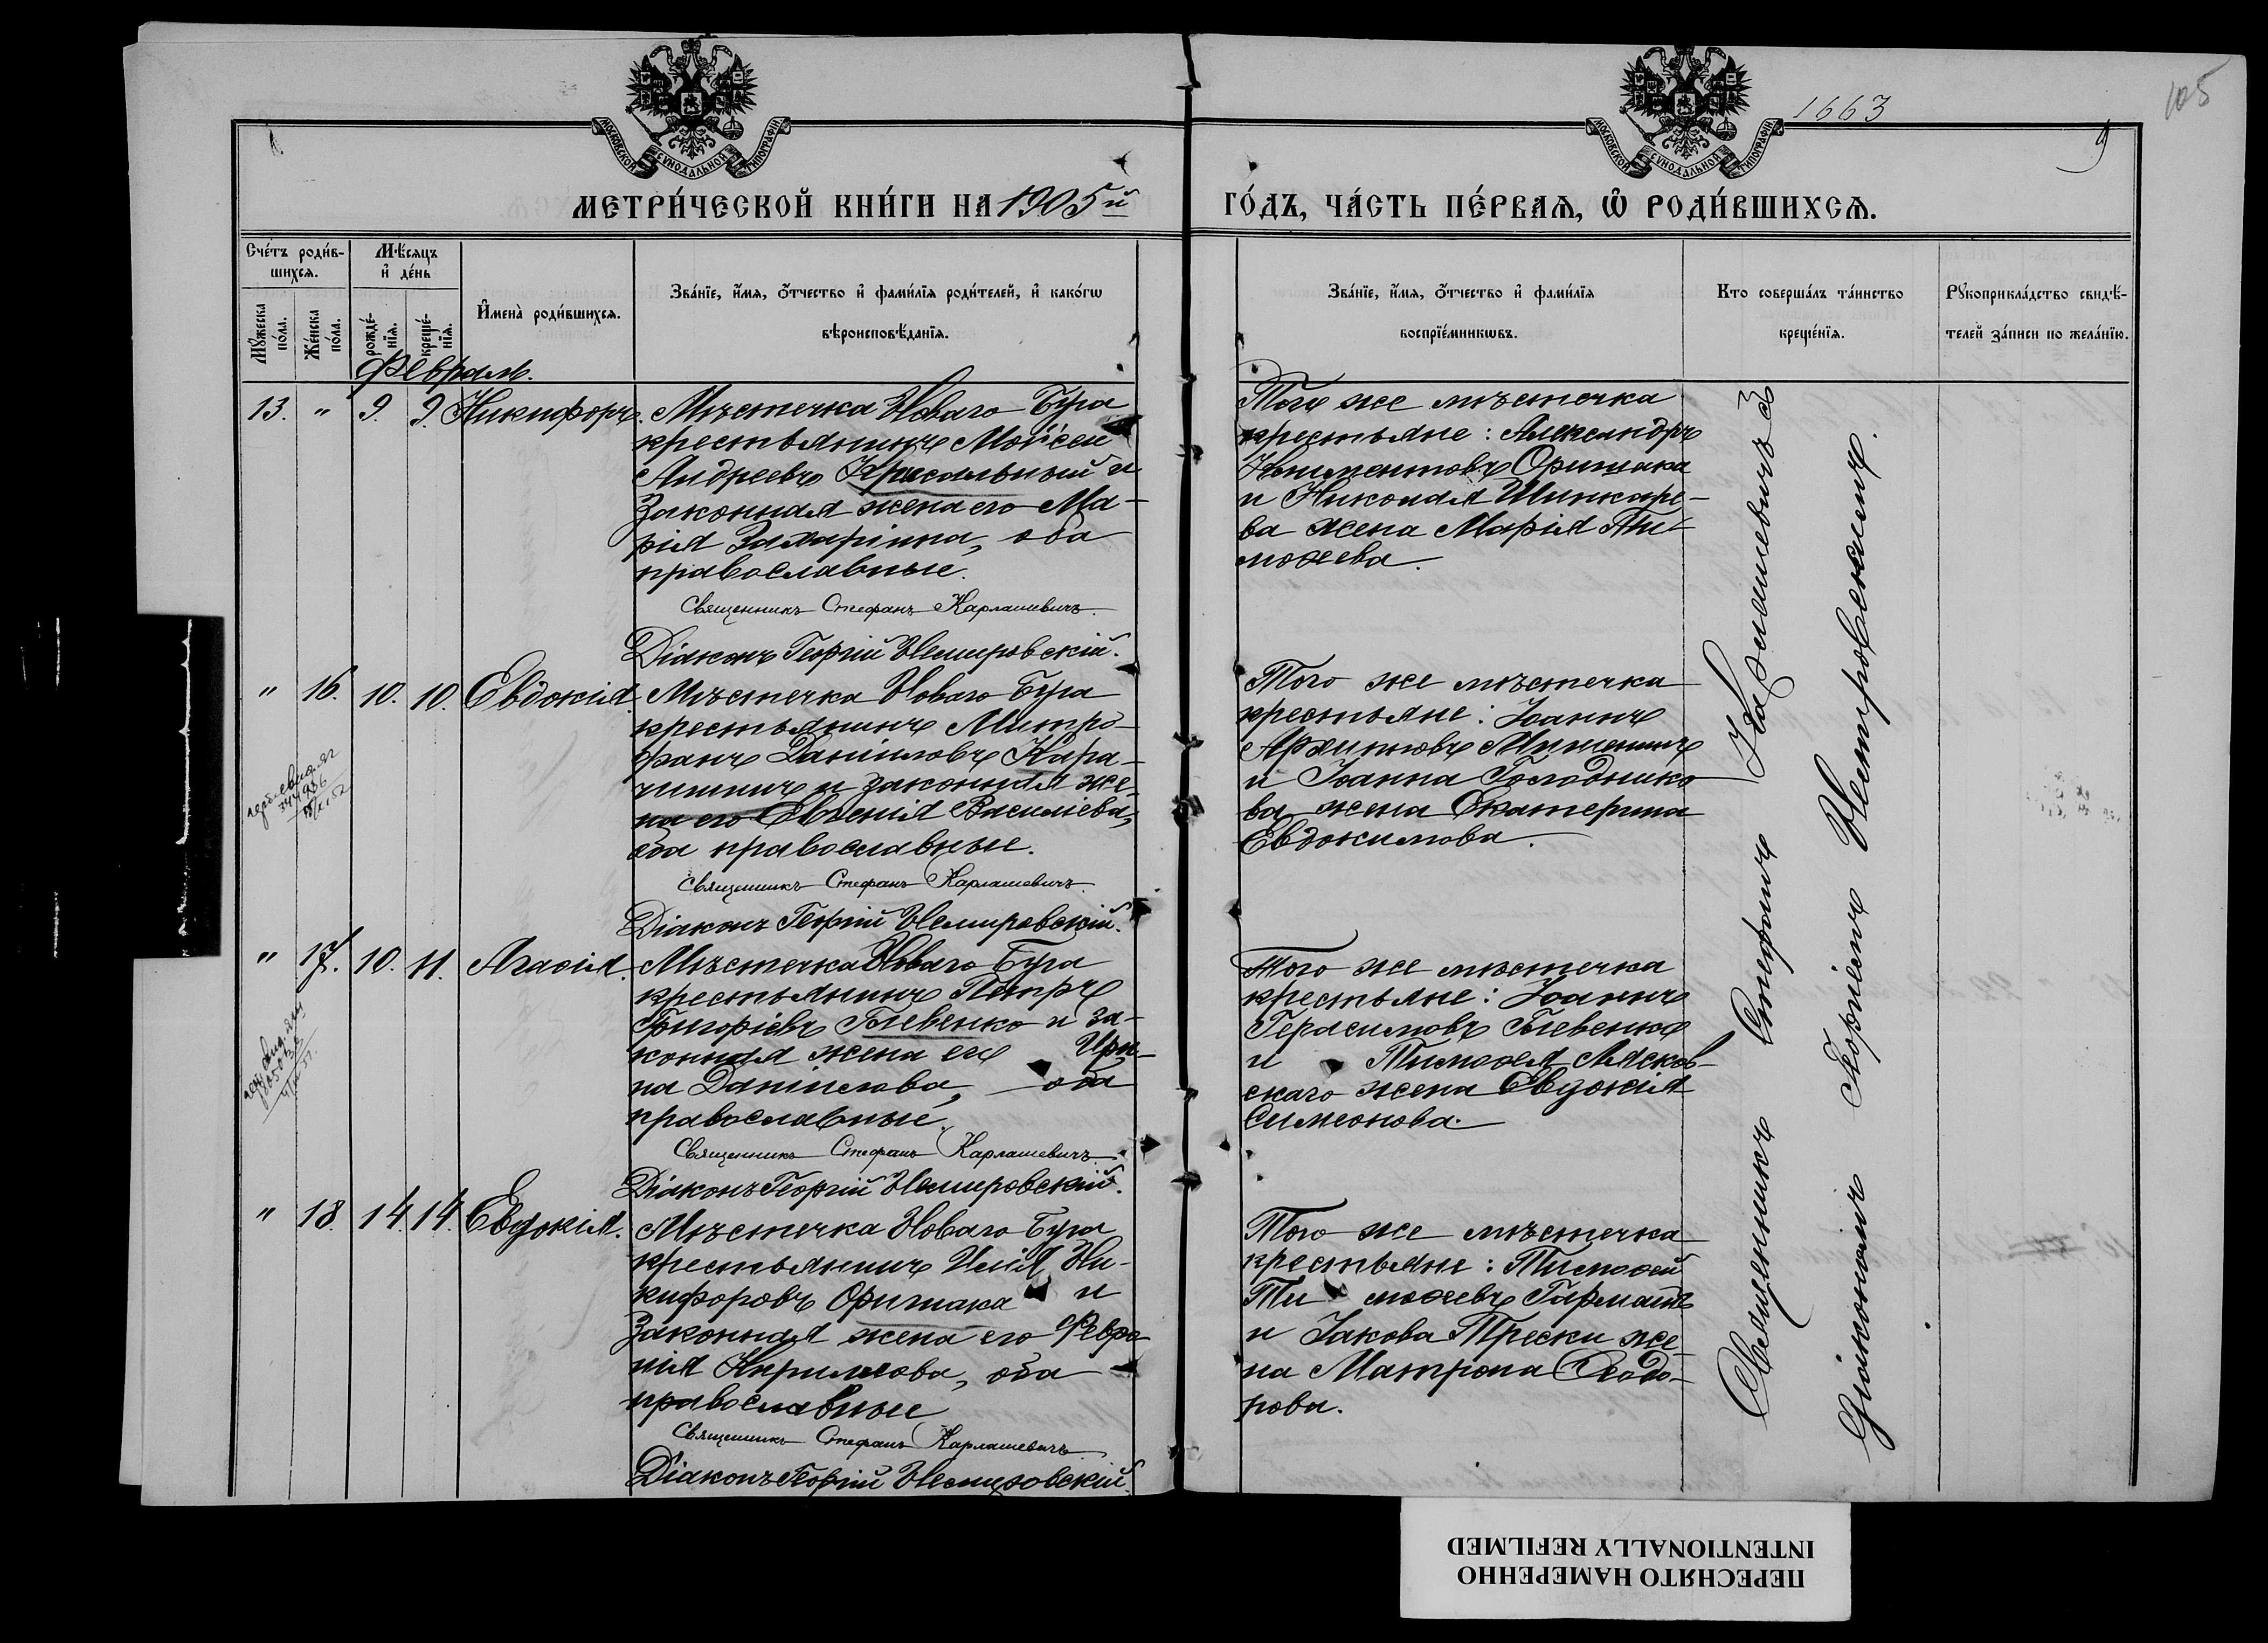 1663
105
9
МОСКОВСКОЙ СУНОДАЛЬНОЙ ТИПОГРАФІИ
МОСКОВСКОЙ СУНОДАЛЬНОЙ ТИПОГРАФІИ
МЕТРИ́ЧЕСКОЙ КНИ́ГИ НА 1905й
ГО́ДЪ, ЧА́СТЬ ПЕ́РВАѦ, Ѡ҆ РОДИ́ВШИХСѦ.
Сче́тъ роди́в-
шихсѧ.
Мꙋ́жеска по́ла.
Же́нска по́ла.
Мѣ́сѧцъ
и҆ де́нь
рожде́-нїѧ.
креще́-нїѧ.
И҆мена̀ роди́вшихсѧ.
Зва́нїе, и҆́мѧ, ѻ҆́тчество и҆ фами́лїѧ роди́телей, и҆ како́гѡ
вѣроисповѣ́данїѧ.
Зва́нїе, и҆́мѧ, ѻ҆́тчество и҆ фами́лїѧ
воспрїе́мникѡвъ.
Кто соверша́лъ та́инство
креще́нїѧ.
Рꙋкоприкла́дство свидѣ́-
телей за́писи по жела́нїю.
Февраль.
13. " 9. 9. Никифоръ.
Мѣстечка Новаго Буга
крестьянинъ Мойсей
Андреевъ Кресальный и
законная жена его Ма-
рія Захаріина, оба
православные.
Священникъ Стефанъ Карлашевичъ.
Діаконъ Георгій Немировскій.
Того же мѣстечка
крестьяне: Александръ
Климентовъ Оришака
и Николая Шинкаре-
ва жена Марія Ти-
моѳеева.
" 16. 10. 10. Евдокія.
Мѣстечка Новаго Буга
крестьянинъ Митро-
фанъ Даніиловъ Кара-
чинъ и законная же-
на его Евгенія Василіева,
оба православные.
Священникъ Стефанъ Карлашевичъ.
Діаконъ Георгій Немировскій.
Того же мѣстечка
крестьяне: Іоаннъ
Архиповъ Мишенинъ
и Іоанна Голоднико
ва жена Екатерина
Евдокимова.
" 17. 10. 11. Агаѳія.
Мѣстечка Новаго Буга
крестьянинъ Петръ
Григоріевъ Глевенко и за-
конная жена его Ири-
на Даніилова, оба
православные.
Священникъ Стефанъ Карлашевичъ.
Діаконъ Георгій Немировскій.
Того же мѣстечка
крестьяне: Іоаннъ
Герасимовъ Глевенко
и Тимоѳея Лясков-
скаго жена Евдокія
Симеонова.
" 18. 14. 14. Евдокія.
Мѣстечка Новаго Буга
крестьянинъ Илія Ни-
кифоровъ Оришака и
законная жена его Февро-
нія Кириллова, оба
православные
Священникъ Стефанъ Карлашевичъ
Діаконъ Георгій Немировскій.
Того же мѣстечка
крестьяне: Тимоѳей
Ти моѳеевъ Гармашъ
и Іакова Трески же-
на Матрона Ѳеодо-
рова.
Священникъ Стефанъ Карлашевичъ з
діакономъ Георгіемъ Немировскимъ.
ПЕРЕСНЯТО НАМЕРЕННО
INTENTIONALLY REFILMED